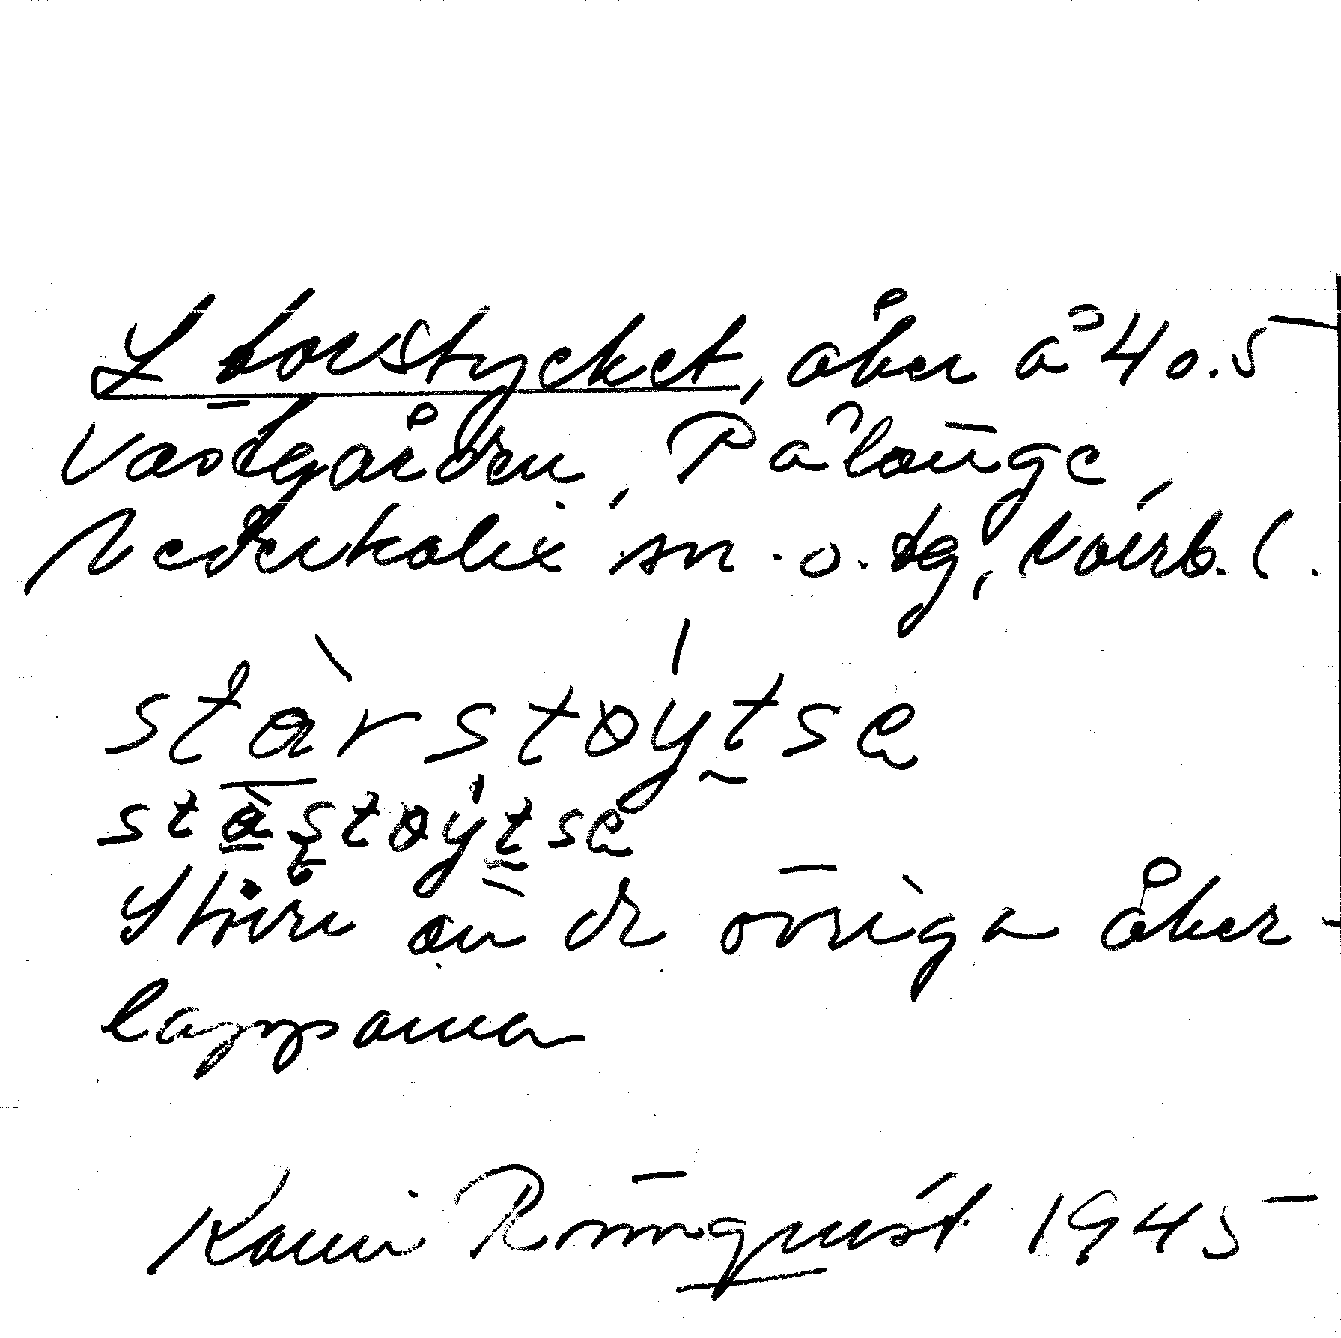 Storstycket, åker å 40.5
Västgården, Pålänge,
Nederkalix sn. o. tg, Norrb. l.
starstøytse
stastøytse
Större än de övriga åker-
lapparna
Karin Rönnquist 1945